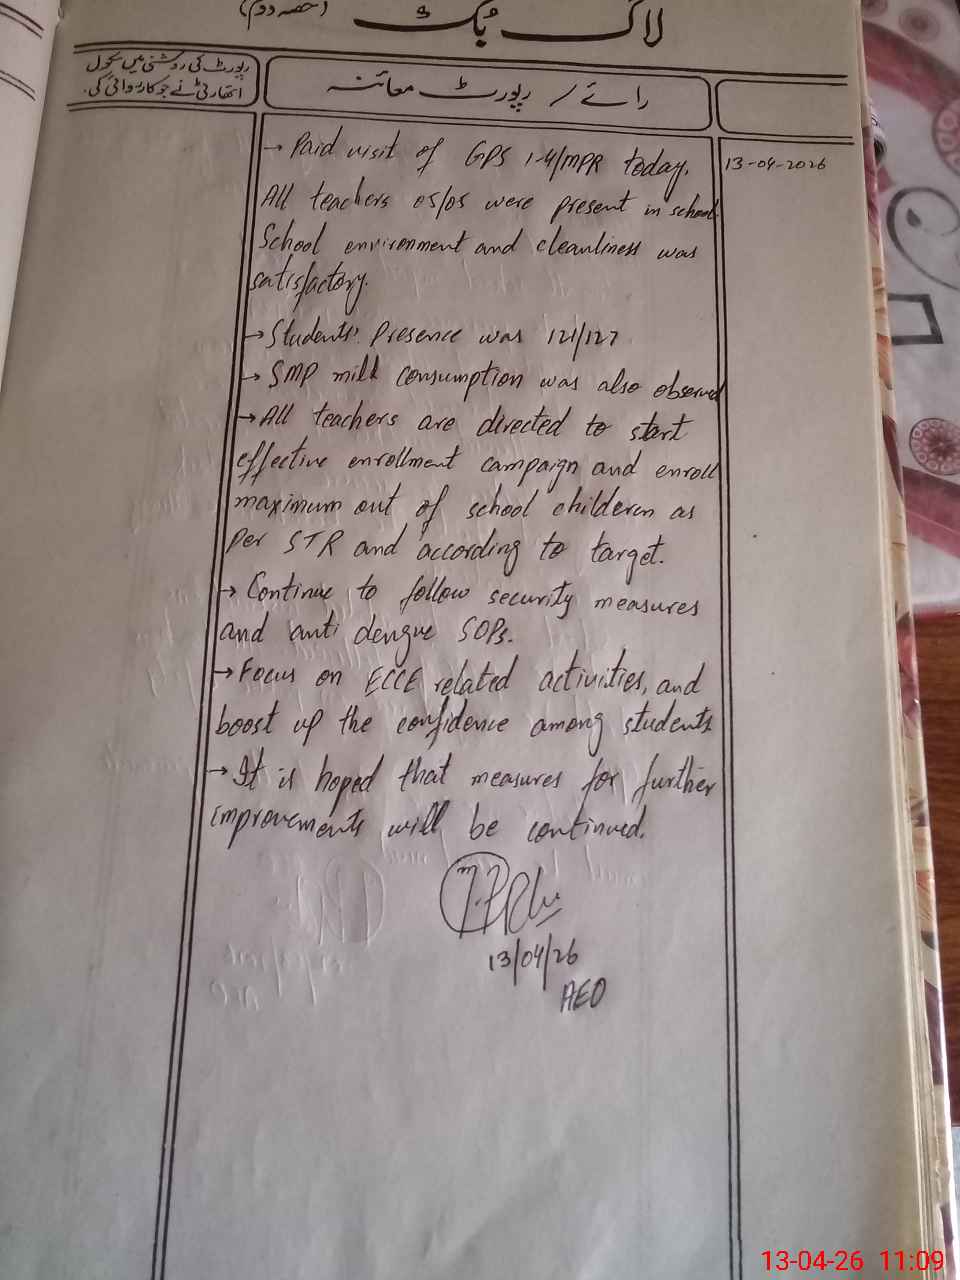 لاگ بُک (حصہ دوم)
رائے / رپورٹ معائنہ
رپورٹ کی روشنی میں سکول
اتھارٹی نے جو کارروائی کی.
13-04-2026
→ Paid visit of GPS 1-4/MPR today.
All teachers 05/05 were present in school.
School environment and cleanliness was
satisfactory.
→ Students' presence was 121/127
→ SMP milk consumption was also observed
→ All teachers are directed to start
effective enrollment campaign and enroll
maximum out of school childeren as
per STR and according to target.
→ Continue to follow security measures
and anti dengue SOPs.
→ Focus on ECCE related activities, and
boost up the confidence among students
→ It is hoped that measures for further
improvements will be continued.
13/04/26
AEO
13-04-26 11:09